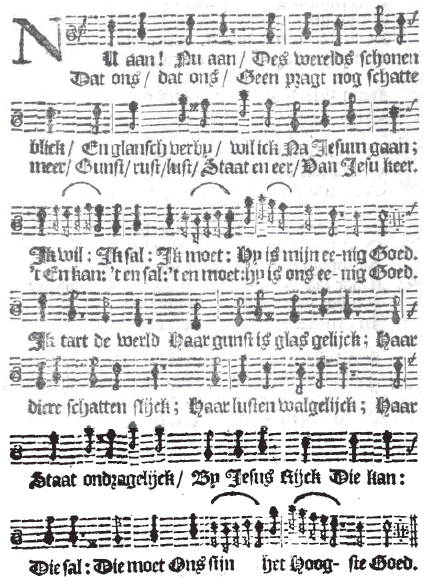 NU aan! Nu aan / Des werelds schonen
Dat ons / dat ons / Geen pragt nog schatte
blick / En glansch verby / wil ick Na Jesum gaan;
meer / Gunst / rust / lust / Staat en eer / Van Jesu keer.
Ik wil: Ik sal: Ik moet: Hy is mijn ee-nig Goed.
't En kan: 't en sal: 't en moet: hy is ons ee-nig Goed.
Ik tart de werld Haar gunst is glas gelijck; Haar
diere schatten slijck; Haar lusten walgelijck; Haar
Staat ondragelijck / By Jesus Rijck Die kan:
Die sal: Die moet Ons sijn het Hoog-ste Goed.